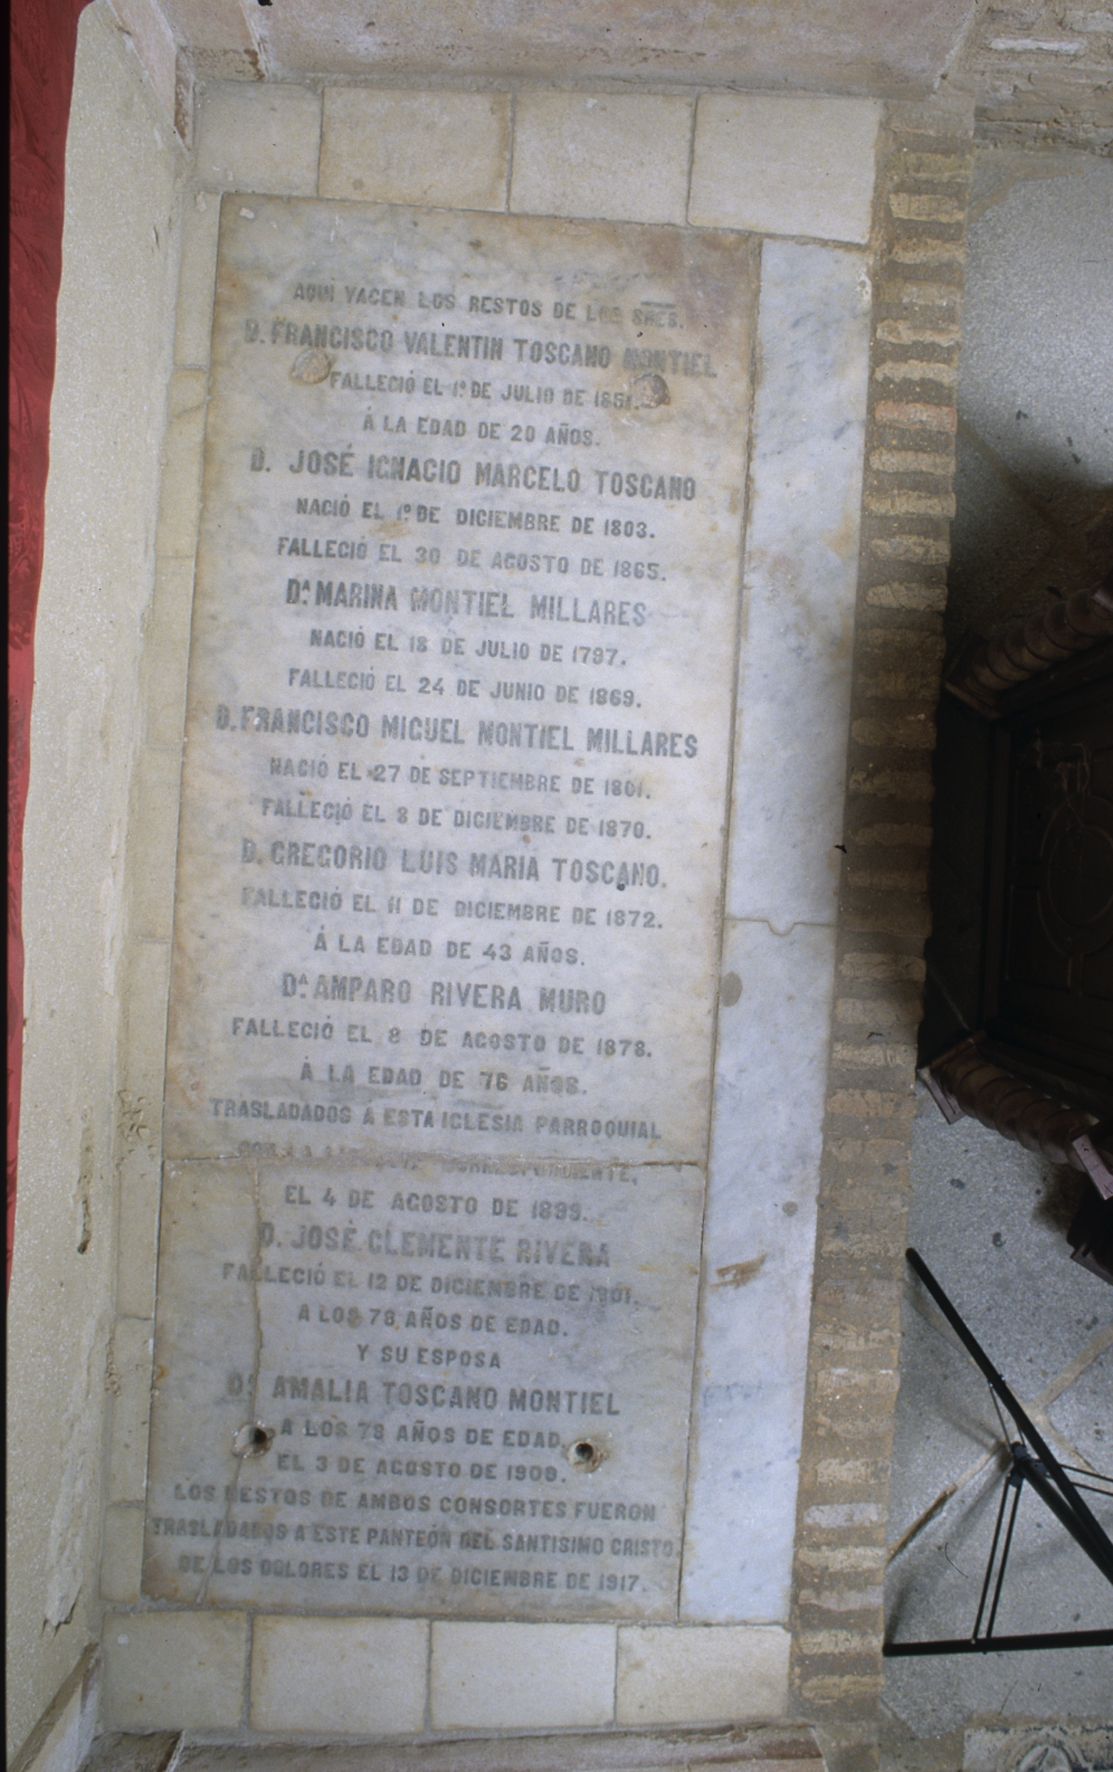 AQUI YACEN LOS RESTOS DE LOS SRES.
D. FRANCISCO VALENTIN TOSCANO MONTIEL
FALLECIÓ EL 1º DE JULIO DE 1851.
Á LA EDAD DE 20 AÑOS.
D. JOSÉ IGNACIO MARCELO TOSCANO
NACIÓ EL 1º DE DICIEMBRE DE 1803.
FALLECIÓ EL 30 DE AGOSTO DE 1865.
Dª MARINA MONTIEL MILLARES
NACIÓ EL 18 DE JULIO DE 1797.
FALLECIÓ EL 24 DE JUNIO DE 1869.
D. FRANCISCO MIGUEL MONTIEL MILLARES
NACIÓ EL 27 DE SEPTIEMBRE DE 1801.
FALLECIÓ EL 8 DE DICIEMBRE DE 1870.
D. GREGORIO LUIS MARIA TOSCANO.
FALLECIÓ EL 11 DE DICIEMBRE DE 1872.
Á LA EDAD DE 43 AÑOS.
Dª AMPARO RIVERA MURO
FALLECIÓ EL 8 DE AGOSTO DE 1878.
Á LA EDAD DE 76 AÑOS.
TRASLADADOS A ESTA IGLESIA PARROQUIAL
CON LA CORRESPONDIENTE,
EL 4 DE AGOSTO DE 1899.
D. JOSÉ CLEMENTE RIVERA
FALLECIÓ EL 12 DE DICIEMBRE DE 1901.
A LOS 78 AÑOS DE EDAD.
Y SU ESPOSA
Dª AMALIA TOSCANO MONTIEL
A LOS 78 AÑOS DE EDAD,
EL 3 DE AGOSTO DE 1909.
LOS RESTOS DE AMBOS CONSORTES FUERON
TRASLADADOS A ESTE PANTEÓN DEL SANTISIMO CRISTO
DE LOS DOLORES EL 13 DE DICIEMBRE DE 1917.